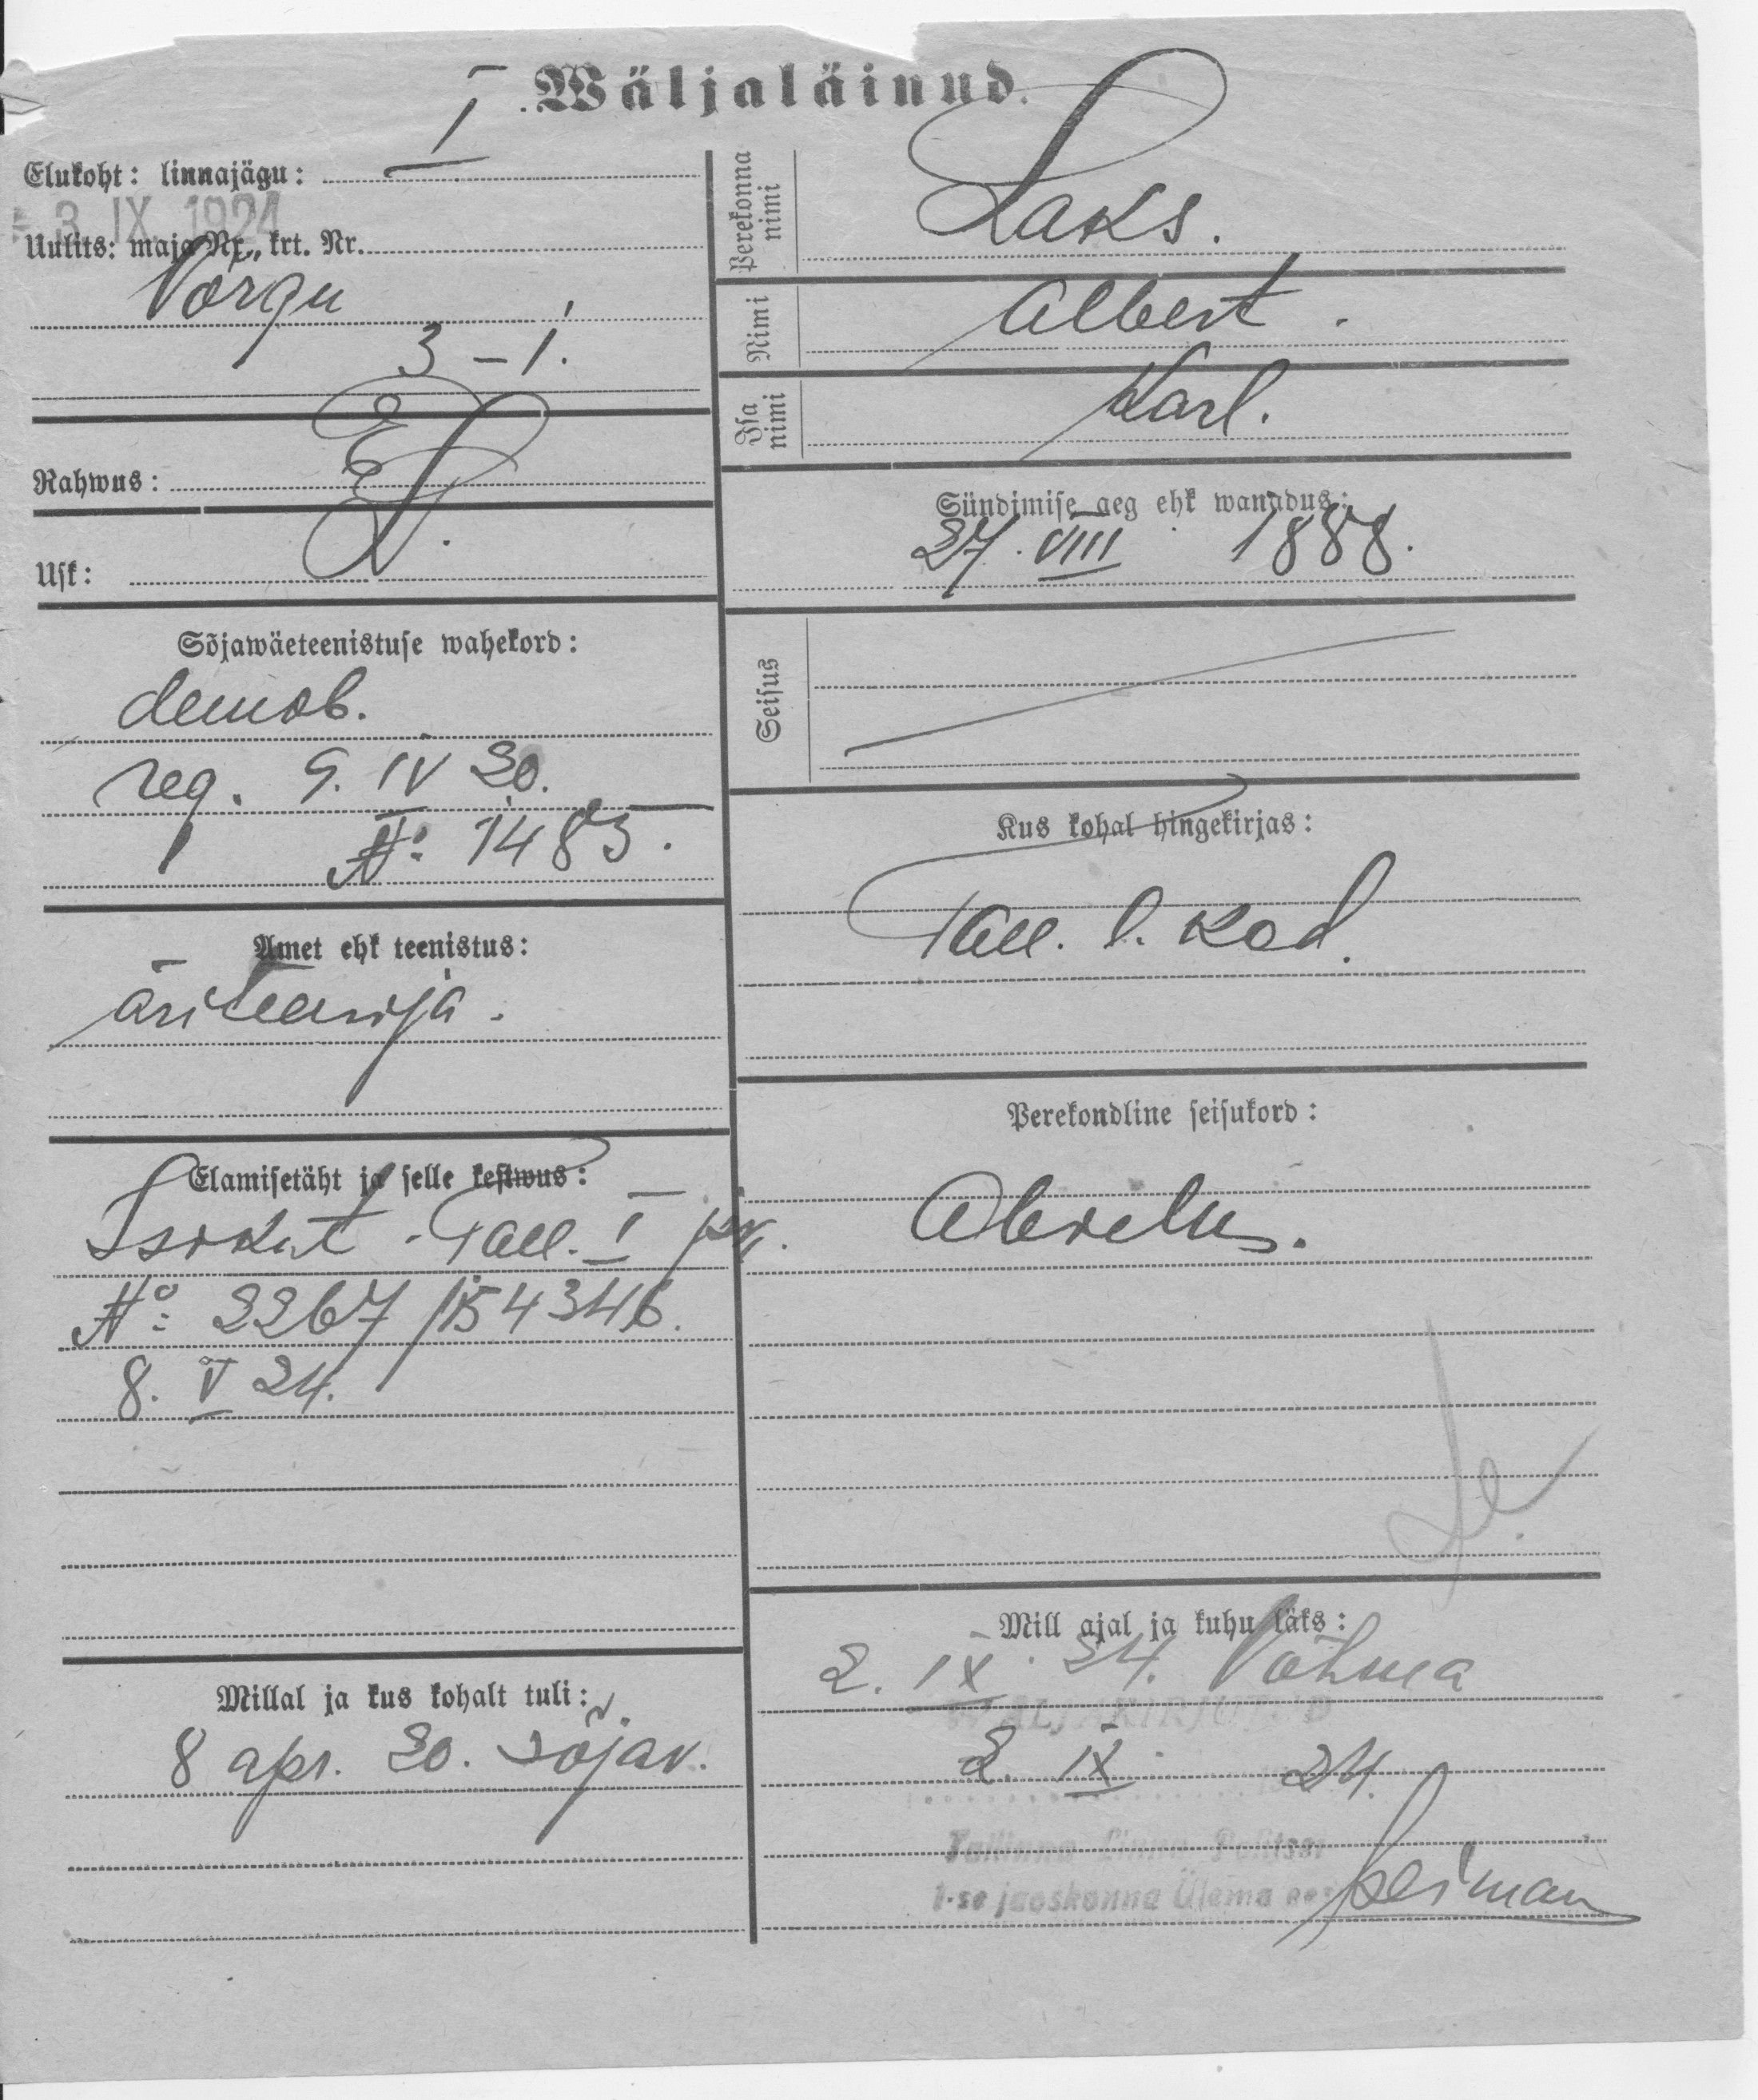 Wäljaläinud.
Elukoht: linnajägu: I
3. IX. 1924
Uulits: maja Nr., krt. Nr.
Võrgu
3 – 1.
Rahwus: E
Usk: L.
Sõjawäeteenistuse wahekord:
demob.
reg. 9. IV 20.
№ 1485.
Amet ehk teenistus:
äriteenija.
Elamisetäht ja selle kestwus:
Isikut. Tall. I
№ 2267/154346.
8. V 24.
Millal ja kus kohalt tuli:
8 apr. 20. sõjav.
Perekonna nimi
Laks.
Nimi
Albert.
Isa nimi
Karl.
Sündimise aeg ehk wanadus:
27. VIII 1888.
Seisus
Kus kohal hingekirjas:
Tall. l. kod.
Perekondline seisukord:
Abielus.
Mill ajal ja kuhu läks:
2. IX 24. Võhma
WÄLJAKIRJUT
2. IX 24.
Tallinna Linna Politsei
1-se jaoskonna Ülema